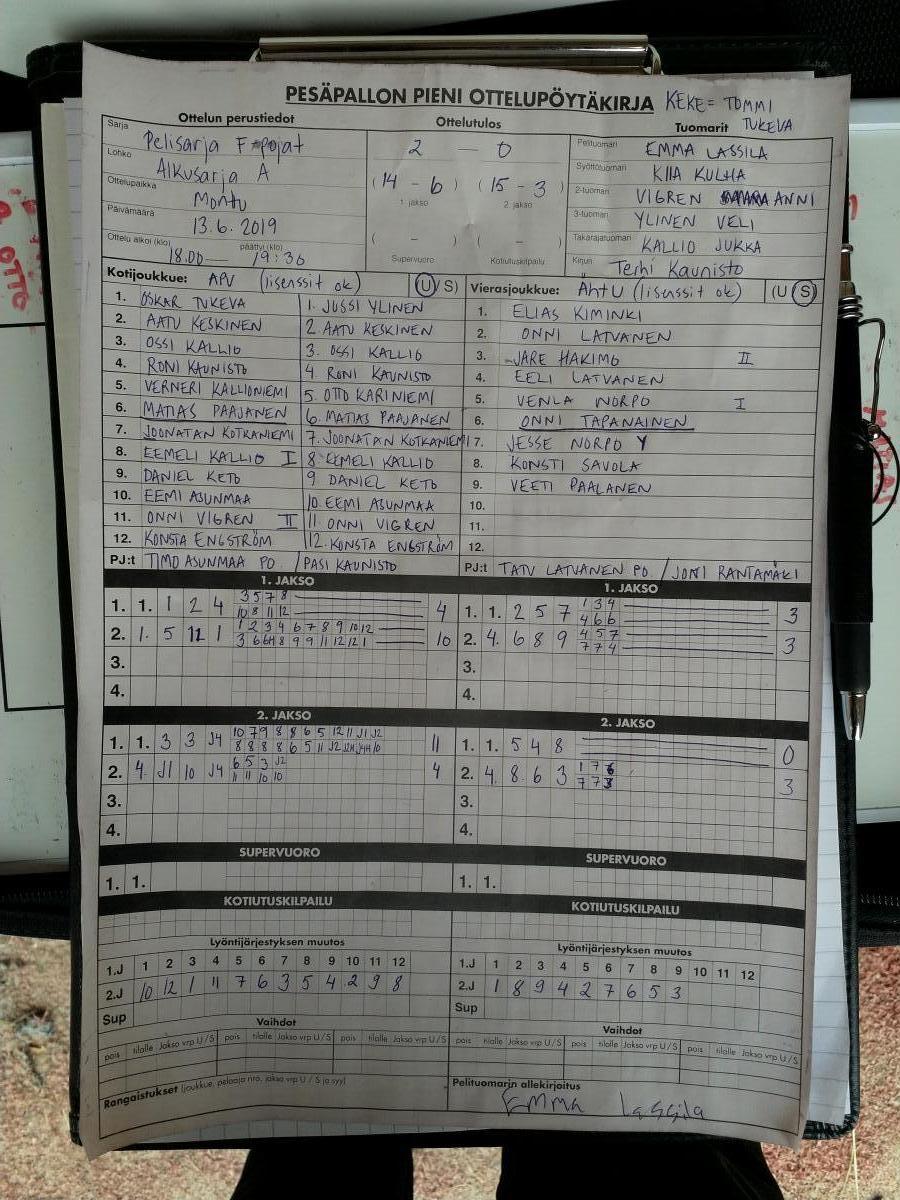 PESÄPALLON PIENI OTTELUPÖYTÄKIRJA KEKE= TOMMI TUKEVA
Ottelun perustiedot Ottelutulos Tuomarit
Sarja Pelisarja F-pojat
Lohko Alkusarja A
Ottelupaikka Montu
Päivämäärä 13.6.2019
Ottelu alkoi (klo) 18.00 — päättyi (klo) 19:36
2 – 0
(14 - 6) (15 - 3)
1. jakso 2. jakso
( - ) ( - )
Supervuoro Kotiutuskilpailu
Pelituomari EMMA LASSILA
Syöttötuomari KIIA KULHA
2-tuomari VIGREN ANNI
3-tuomari YLINEN VELI
Takarajatuomari KALLIO JUKKA
Kirjuri Terhi Kaunisto
Kotijoukkue: APV (lisenssit ok) (U/S)
1. OSKAR TUKEVA 1. JUSSI YLINEN
2. AATU KESKINEN 2. AATU KESKINEN
3. OSSI KALLIO 3. OSSI KALLIO
4. RONI KAUNISTO 4. RONI KAUNISTO
5. VERNERI KALLIONIEMI 5. OTTO KARINIEMI
6. MATIAS PAAJANEN 6. MATIAS PAAJANEN
7. JOONATAN KOTKANIEMI 7. JOONATAN KOTKANIEMI
8. EEMELI KALLIO I 8 EEMELI KALLIO
9. DANIEL KETO 9 DANIEL KETO
10. EEMI ASUNMAA 10. EEMI ASUNMAA
11. ONNI VIGREN II 11. ONNI VIGREN
12. KONSTA ENGSTRÖM 12. KONSTA ENGSTRÖM
PJ:t TIMO ASUNMAA PO / PASI KAUNISTO
Vierasjoukkue: AhtU (lisenssit ok) (U/S)
1. ELIAS KIMINKI
2. ONNI LATVANEN
3. JARE HAKIMO II
4. EELI LATVANEN
5. VENLA NORPO I
6. ONNI TAPANAINEN
7. JESSE NORPO Y
8. KONSTI SAVOLA
9. VEETI PAALANEN
10.
11.
12.
PJ:t TATU LATVANEN PO / JONI RANTAMÄKI
1. JAKSO
1. 1. 1 2 4 3 5 7 8 4
10 8 11 12
2. 1. 5 12 1 1 2 3 4 6 7 8 9 10 12 10
3 6 6 4 8 9 9 11 12 12 1
3.
4.
1. JAKSO
1. 1. 2 5 7 1 3 4 3
4 6 6
2. 4. 6 8 9 4 5 7 3
7 7 4
3.
4.
2. JAKSO
1. 1. 3 3 J4 10 7 9 8 8 6 5 12 11 J1 J2 11
8 8 8 8 6 5 11 J2
2. 4. J1 10 J4 6 5 3 J2 4
11 11 10 10
3.
4.
2. JAKSO
1. 1. 5 4 8 0
2. 4. 8 6 3 1 7 6 3
7 7 3
3.
4.
SUPERVUORO
1. 1.
SUPERVUORO
1. 1.
KOTIUTUSKILPAILU
KOTIUTUSKILPAILU
Lyöntijärjestyksen muutos
1.J 1 2 3 4 5 6 7 8 9 10 11 12
2.J 10 12 1 11 7 6 3 5 4 2 9 8
Sup
Lyöntijärjestyksen muutos
1.J 1 2 3 4 5 6 7 8 9 10 11 12
2.J 1 8 9 4 2 7 6 5 3
Sup
Vaihdot
pois tilalle Jakso vrp U/S pois tilalle Jakso vrp U/S pois tilalle Jakso vrp U/S
Vaihdot
pois tilalle Jakso vrp U/S pois tilalle Jakso vrp U/S pois tilalle Jakso vrp U/S
Rangaistukset (joukkue, pelaaja nro, jakso vrp U / S ja syy)
Pelituomarin allekirjoitus
Emma Lassila